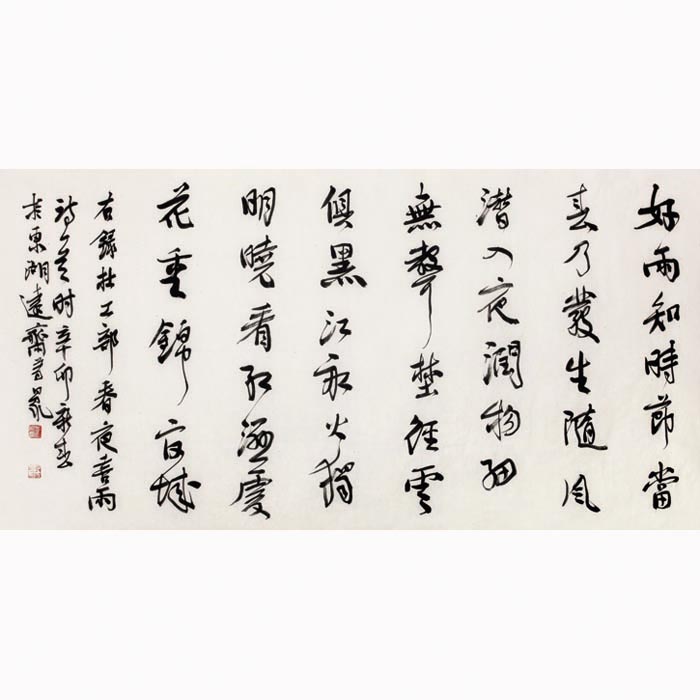 好雨知時節當
春乃發生隨風
潛入夜潤物細
無聲埜徑雲
俱黑江船火獨
明曉看紅濕處
花重錦官城
右錄杜工部春夜喜雨
詩一首时辛卯新春
於東湖遠齋